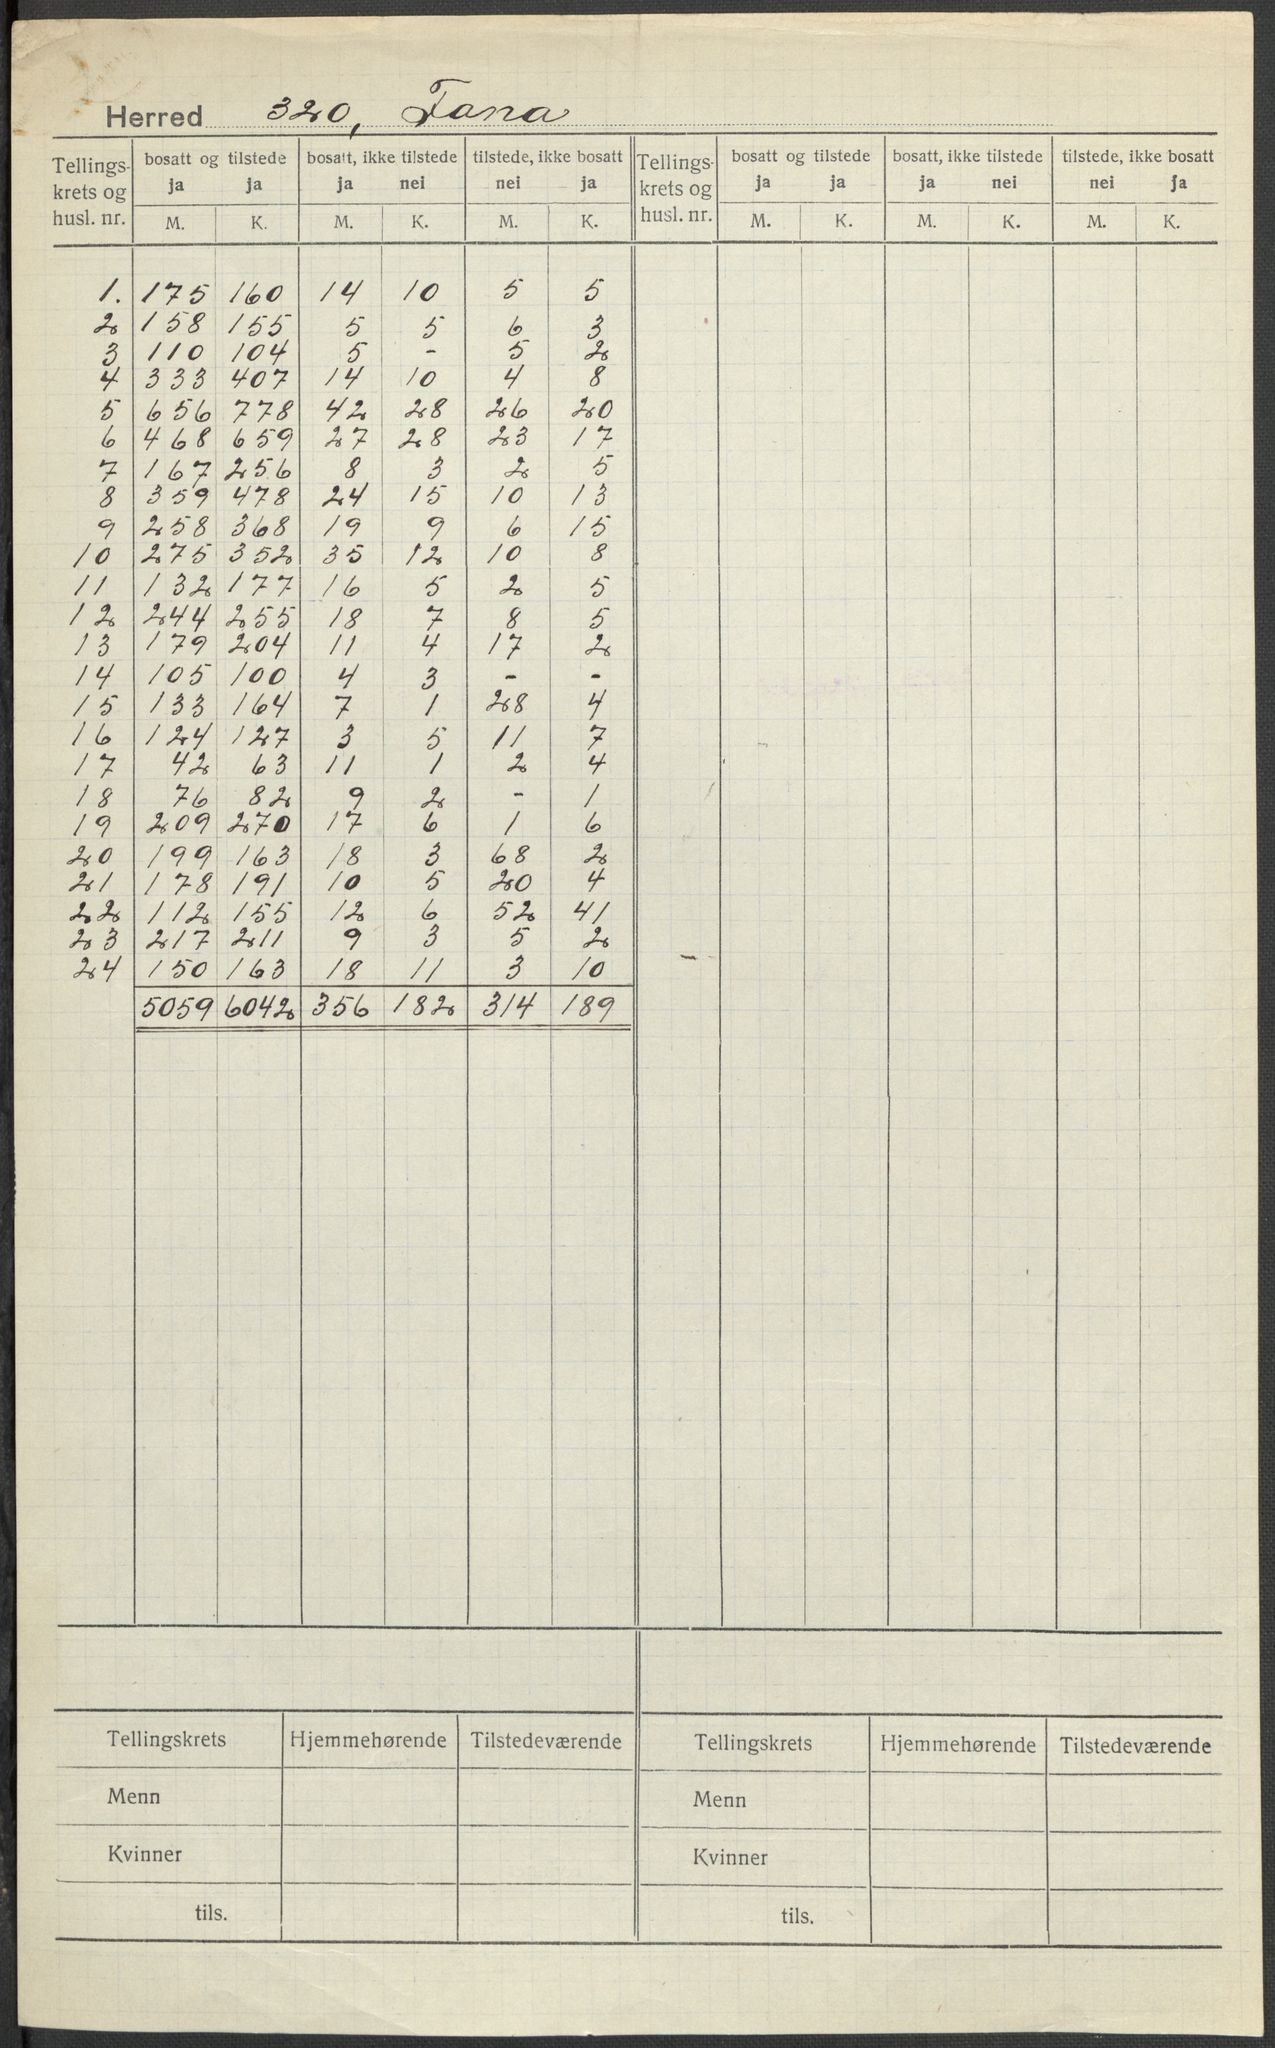 Herred 320, Fana
Tellings-krets og husl. nr. | bosatt og tilstede ja ja | bosatt, ikke tilstede ja nei | tilstede, ikke bosatt nei ja | Tellings-krets og husl. nr. | bosatt og tilstede ja ja | bosatt, ikke tilstede ja nei | tilstede, ikke bosatt nei ja
M. K. M. K. M. K. M. K. M. K. M. K.
1. 175 160 14 10 5 5
2 158 155 5 5 6 3
3 110 104 5 - 5 2
4 333 407 14 10 4 8
5 656 778 42 28 26 20
6 468 659 27 28 23 17
7 167 256 8 3 2 5
8 359 478 24 15 10 13
9 258 368 19 9 6 15
10 275 352 35 12 10 8
11 132 177 16 5 2 5
12 244 255 18 7 8 5
13 179 204 11 4 17 2
14 105 100 4 3 - -
15 133 164 7 1 28 4
16 124 127 3 5 11 7
17 42 63 11 1 2 4
18 76 82 9 2 - 1
19 209 270 17 6 1 6
20 199 163 18 3 68 2
21 178 191 10 5 20 4
22 112 155 12 6 52 41
23 217 211 9 3 5 2
24 150 163 18 11 3 10
5059 6042 356 182 314 189
Tellingskrets Hjemmehørende Tilstedeværende Tellingskrets Hjemmehørende Tilstedeværende
Menn Menn
Kvinner Kvinner
tils. tils.